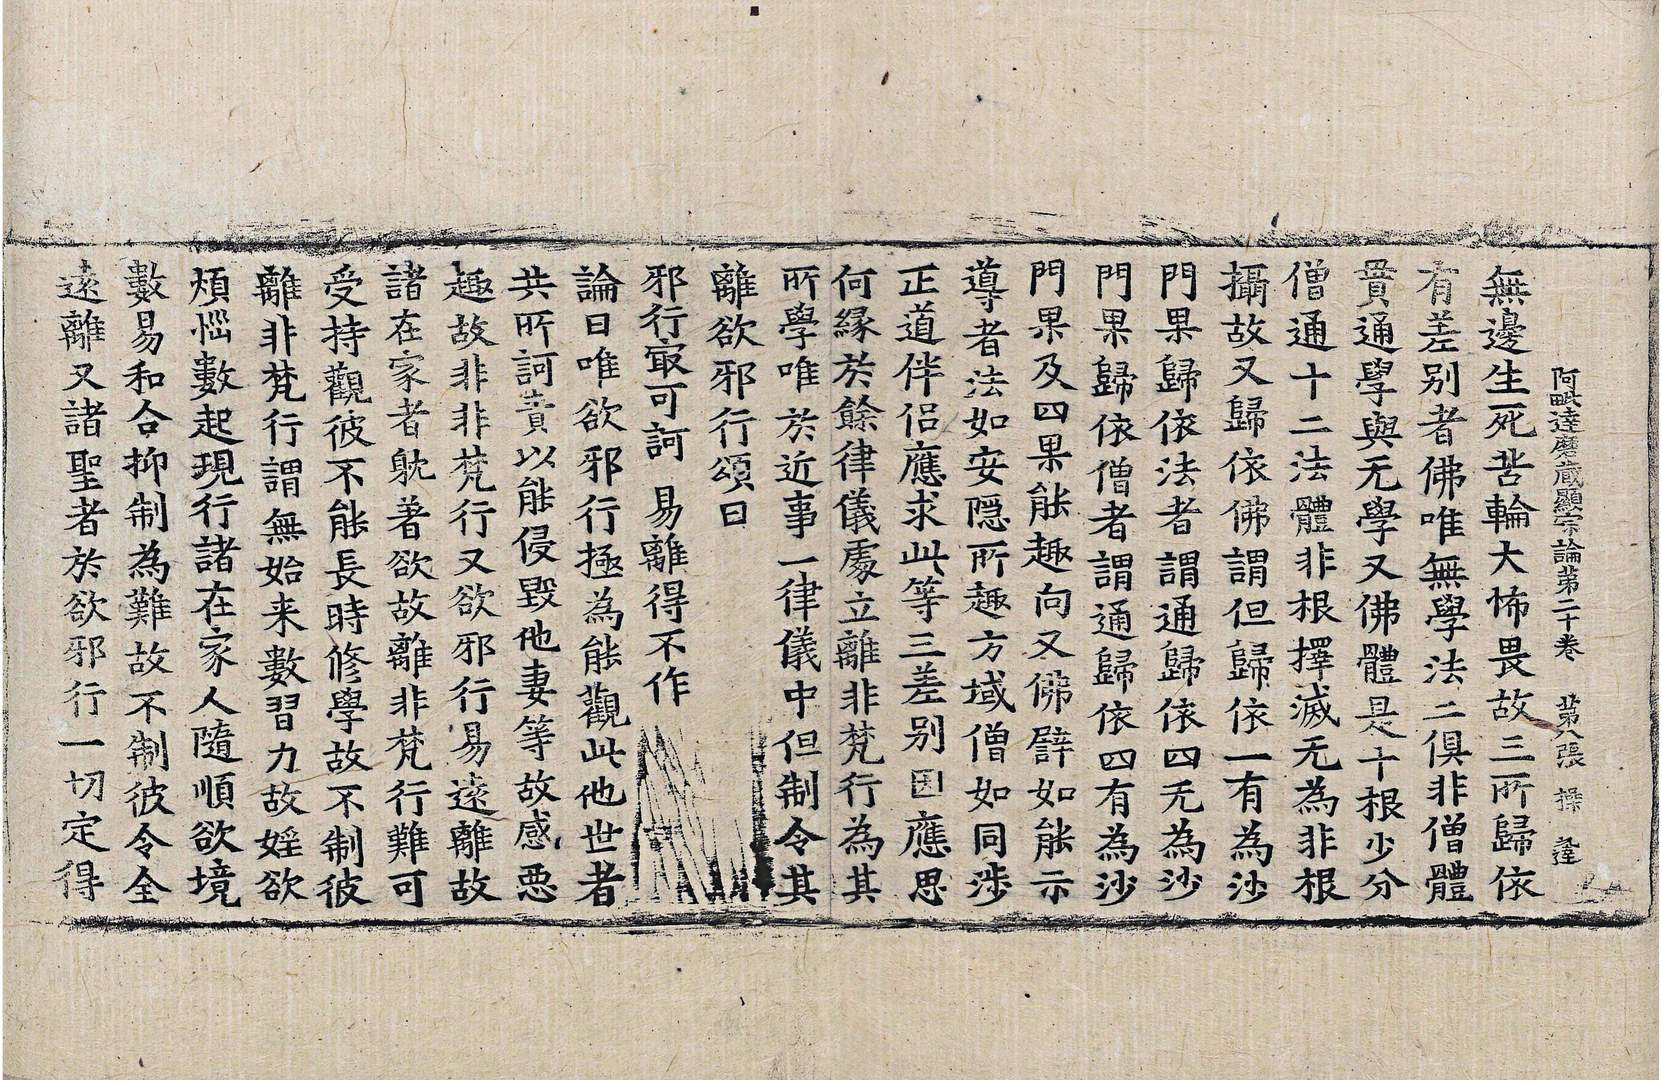 阿毗達磨藏顯宗論第二十卷 第八張 操 逹
無邊生死苦輪大怖畏故三所歸依
有差别者佛唯無學法二俱非僧體
貫通學與无學又佛體是十根少分
僧通十二法體非根擇滅无為非根
攝故又歸依佛謂但歸依一有為沙
門果歸依法者謂通歸依四无為沙
門果歸依僧者謂通歸依四有為沙
門果及四果能趣向又佛譬如能示
導者法如安隱所趣方域僧如同涉
正道伴侣應求此等三差别因應思
何緣於餘律儀處立離非梵行為其
所學唯於近事一律儀中但制令其
離欲邪行頌曰
邪行㝡可訶 易離得不作
論曰唯欲邪行極為能觀此他世者
共所訶責以能侵毀他妻等故感惡
趣故非非梵行又欲邪行易遠離故
諸在家者躭著欲故離非梵行難可
受持觀彼不能長時修學故不制彼
離非梵行謂無始来數習力故婬欲
煩惱數起現行諸在家人隨順欲境
數易和合抑制為難故不制彼令全
遠離又諸聖者於欲邪行一切定得